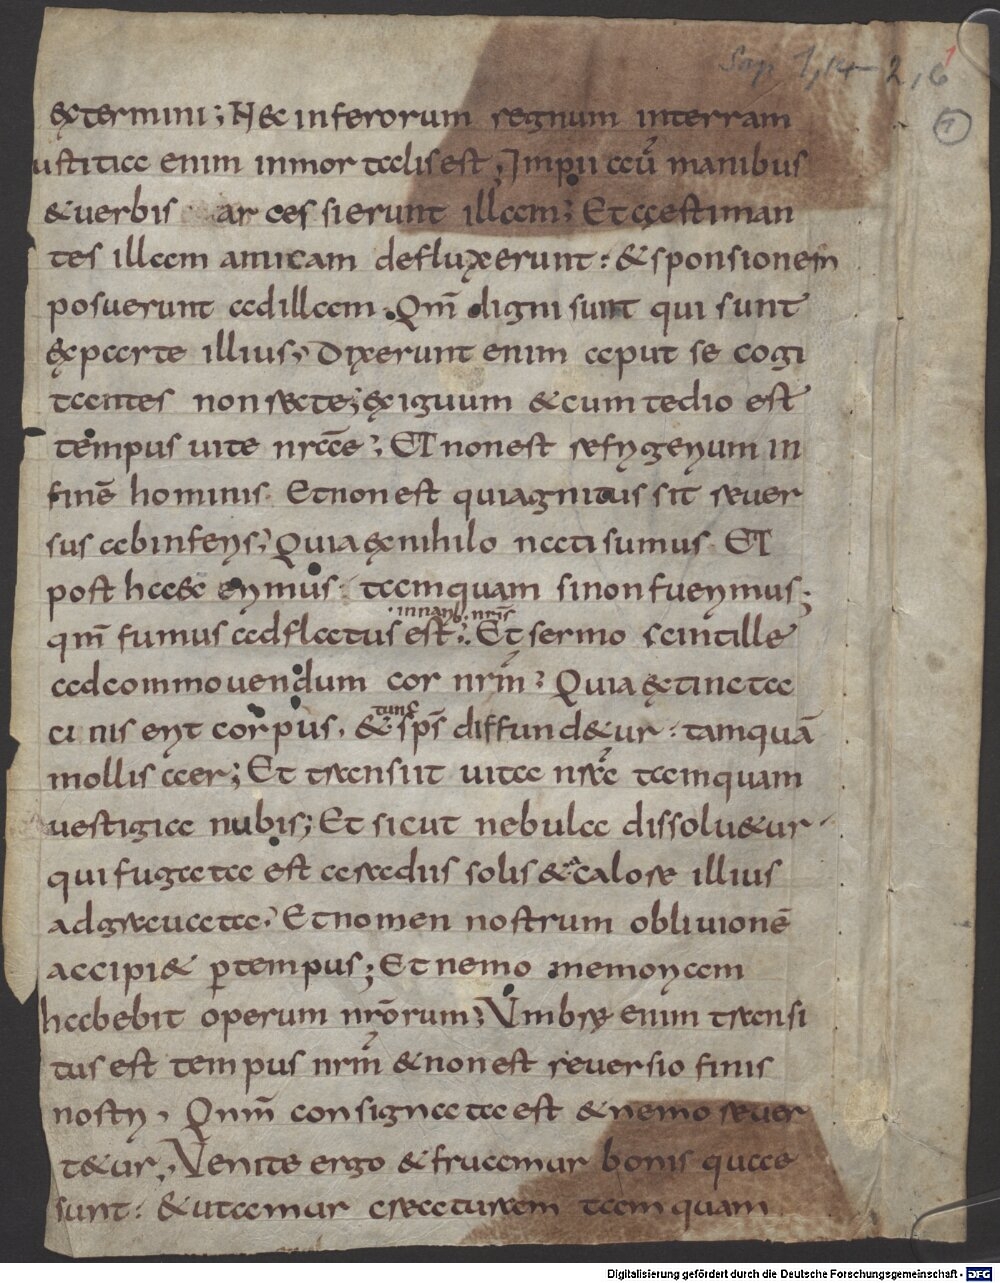 Sap 1,14–2,6
1
extermini; Nec inferorum regnum interram
ustitia enim inmortalis est; Impii aũ manibus
&uerbis arcessierunt illam; Et ęstiman
tes illam amicam defluxerunt: &sponsionem
posuerunt adillam. Qm̃ digni sunt qui sunt
exparte illius; Dixerunt enim aput se cogi
tantes nonrecte; exiguum &cum tedio est
tempus uite nrãe; ET nonest refrigerium in
finẽ hominis. Etnonest quiagnitus sit reuer
sus abinferis; Quia exnihilo nati sumus. ET
post haec erimus: tamquam sinonfuerimus;
innarib; nris̃
qm̃ fumus adflatus est; Et sermo scintille
adcommouendum cor nrm̃; Quia extincta
cinis erit corpus, & sps̃ diffund&ur: tamquã
mollis aer; Et transiit uita nrẽ tamquam
uestigia nubis; Et sicut nebula dissolu&ur
qui fugata est aradiis solis &acalore illius
adgrauata; Etnomen nostrum obliuionẽ
accipi& ptempus; Et nemo memoriam
habebit operum nrõrum; Vmbrę enim transi
tus est tempus nrm̃ &nonest reuersio finis
nostri, Qnm̃ consignata est &nemo reuer
t&ur, Venite ergo &fruamur bonis quae
sunt: &utamur creaturam tamquam
Digitalisierung gefördert durch die Deutsche Forschungsgemeinschaft - DFG